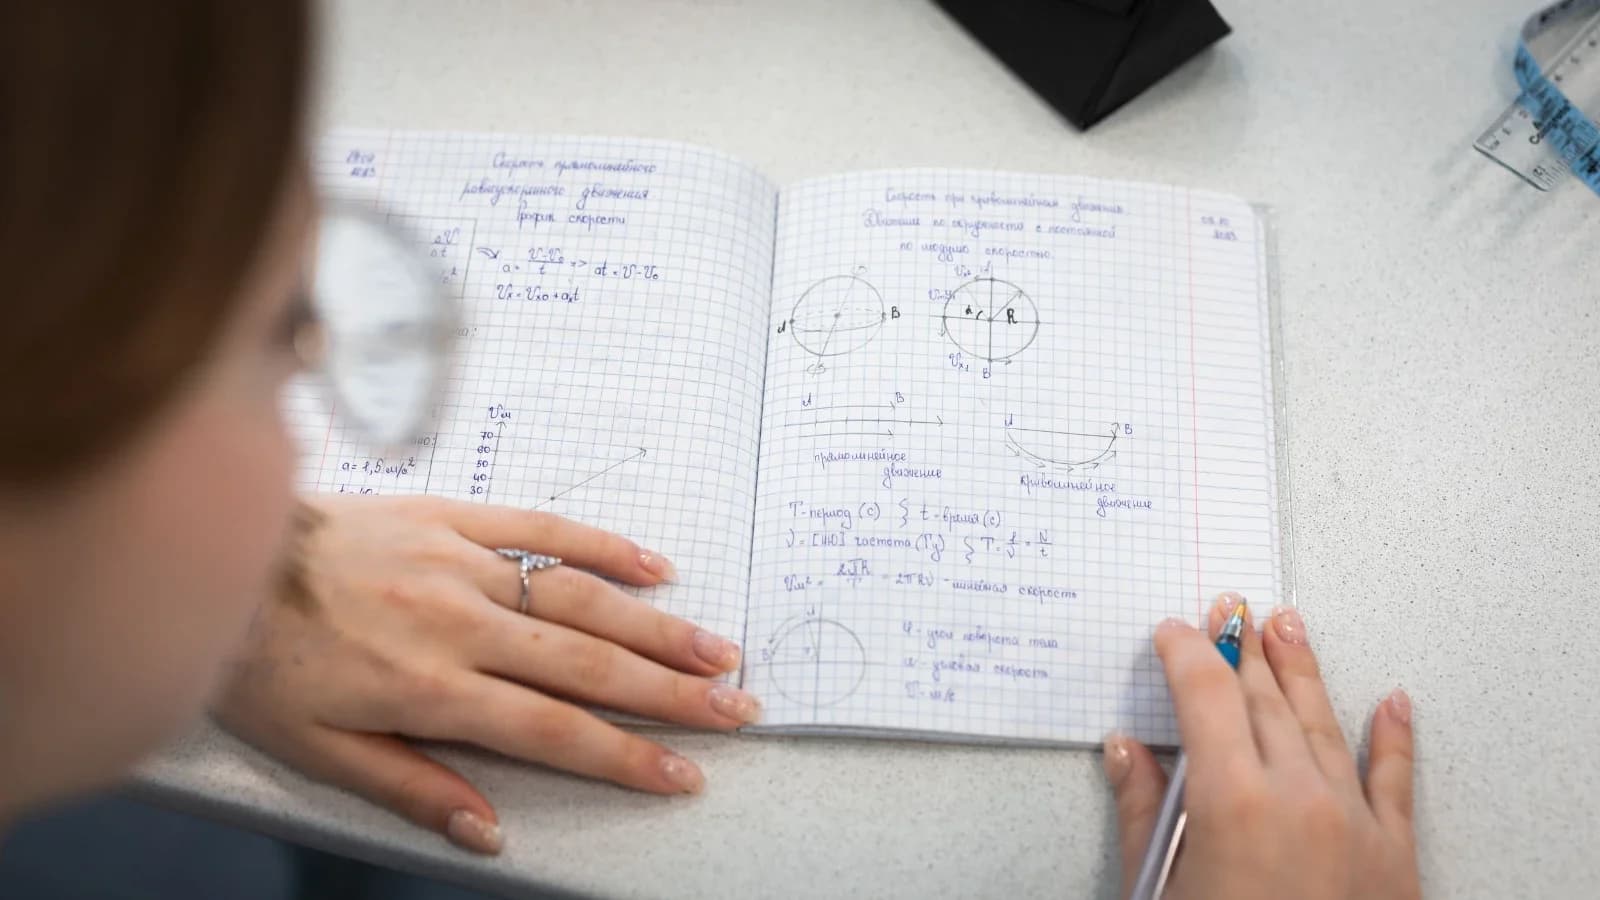 2023
Скорость прямолинейного
равноускоренного движения.
График скорости
ΔV
Δt
a = V-V₀/t => at = V-V₀
Vₓ = Vₓ₀ + aₓt
a = 1,5 м/с²
70
60
50
40
30
2023
Скорость при криволинейном движении.
Движение по окружности с постоянной
по модулю скоростью.
A
B
α
R
Vₓ₁
B
A
B
A
B
прямолинейное
движение
криволинейное
движение
T - период (с) } t - время (с)
ν = [НЮ] частота (Гц) } T = 1/ν = N/t
2πR/T = 2πRν - линейная скорость
A
B
φ - угол поворота тела
угловая скорость
м/с